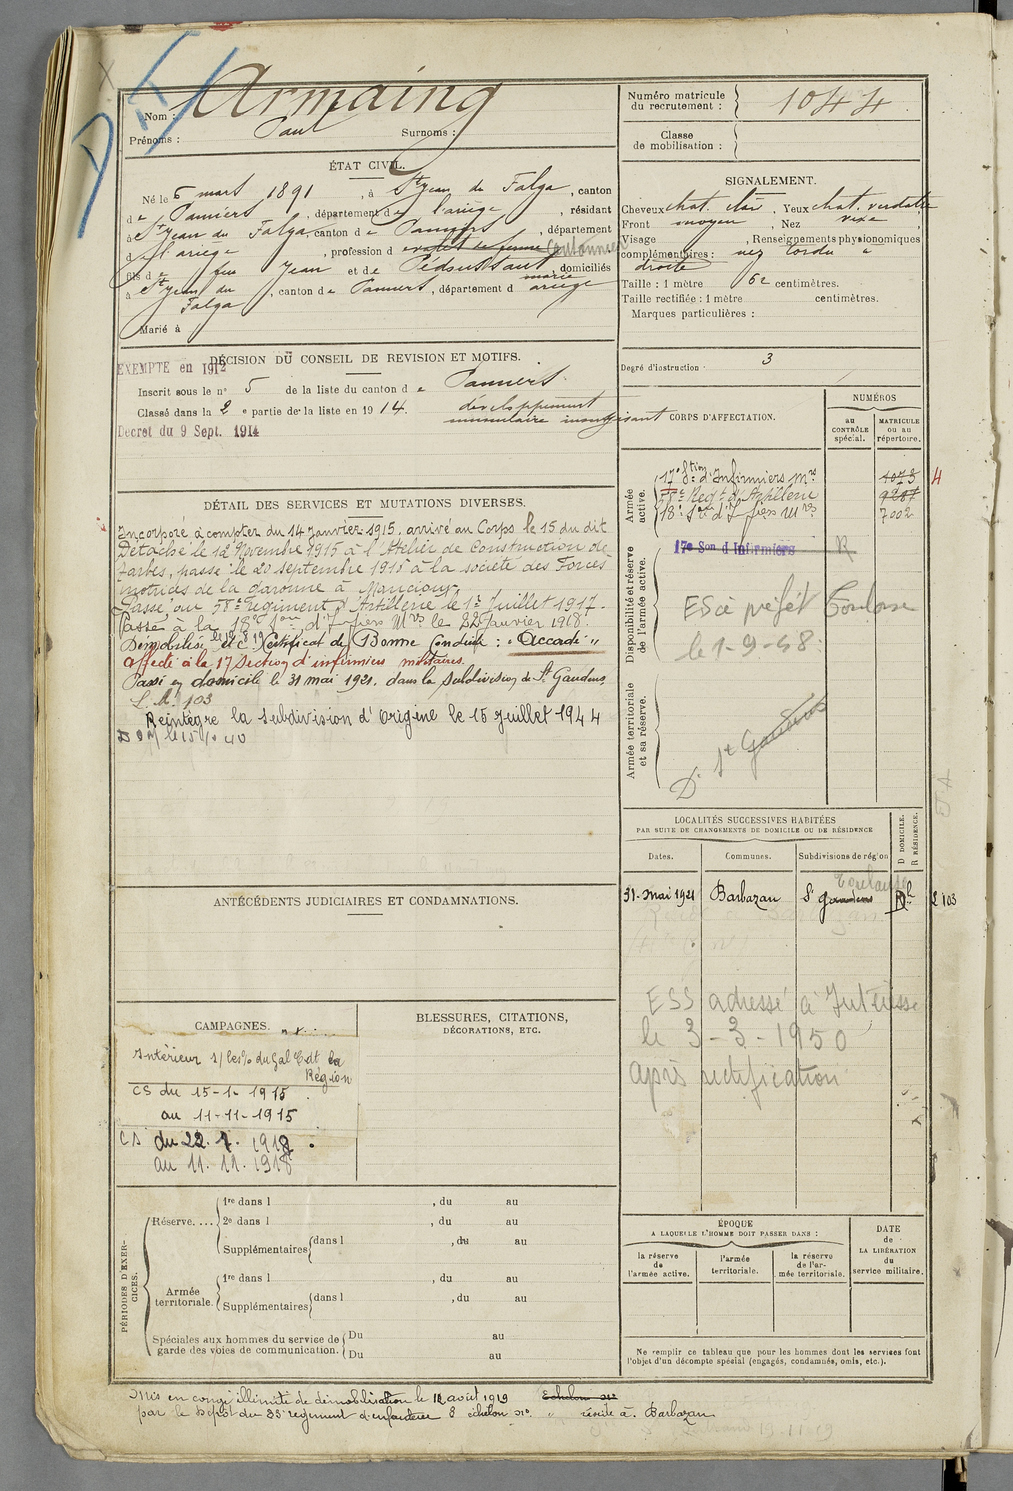 Nom : Armaing
Prénoms : Paul Surnoms :
Numéro matricule du recrutement : 1044
Classe de mobilisation :
ÉTAT CIVIL.
Né le 5 mars 1891, à St Jean du Falga, canton
de Pamiers, département de l'ariège, résidant
à St Jean du Falga, canton de Pamiers, département
d l'ariège, profession de valet de ferme Cantonnier
fils de feu Jean et de Pédoussaut marie domiciliés
à St Jean du Falga, canton de Pamiers, département d ariège
Marié à
SIGNALEMENT.
Cheveux chat. clair, Yeux chat. verdatre
Front moyen, Nez vexe
Visage , Renseignements physionomiques
complémentaires : nez tordu à
droite
Taille : 1 mètre 62 centimètres.
Taille rectifiée : 1 mètre centimètres.
Marques particulières :
Degré d'instruction : 3
DÉCISION DU CONSEIL DE REVISION ET MOTIFS.
EXEMPTE en 1912
Inscrit sous le n° 5 de la liste du canton de Pamiers.
Classé dans la 2e partie de la liste en 1914. développement
musculaire insuffisant
Décret du 9 Sept. 1914
DÉTAIL DES SERVICES ET MUTATIONS DIVERSES.
Incorporé à compter du 14 Janvier 1915, arrivé au Corps le 15 du dit
Détaché le 12 Novembre 1915 à l'Atelier de Construction de
Tarbes, passé le 20 septembre 1916 à la société des Forces
motrices de la Garonne à Mancioux
Passé au 58e régiment d'Artillerie le 1er Juillet 1917.
Passé à la 18e Son d'Infiers Mres le 22 Janvier 1918.
Démobilisé le 12 8 19 Certificat de Bonne Conduite : "Accordé"
affecté à la 17 Section d'infirmiers militaires.
Passé en domicile le 31 mai 1921, dans la subdivision de St Gaudens,
L. A. 103
Réintègre la subdivision d'origine le 15 Juillet 1944
CORPS D'AFFECTATION.
NUMÉROS
au CONTRÔLE spécial.
MATRICULE ou au répertoire.
Armée active.
17e Stion d'Infirmiers Mres 1073 4
58e Regt d'Artillerie 9287
18e Son d'Infiers Mres 7002
Disponibilité et réserve de l'armée active.
17e Son d'Infirmiers R
ESCé préfet Toulouse
le 1-9-48
Armée territoriale et sa réserve.
D. St Gaudens
LOCALITÉS SUCCESSIVES HABITÉES
PAR SUITE DE CHANGEMENTS DE DOMICILE OU DE RÉSIDENCE
Dates. Communes. Subdivisions de région D DOMICILE. R RÉSIDENCE.
Toulouse
31-mai 1921 Barbazan St Gaudens Dle L 103
ESS adressé à
le 3-3-1950
après rectification
ANTÉCÉDENTS JUDICIAIRES ET CONDAMNATIONS.
CAMPAGNES.
Intérieur s/les% du Gal Cdt la
Région
CS du 15-1-1915
au 11-11-1915
CS du 22. 1. 1918
au 11. 11. 1918
BLESSURES, CITATIONS,
DÉCORATIONS, ETC.
PÉRIODES D'EXERCICES.
Réserve.... 1re dans l , du au
2e dans l , du au
Supplémentaires dans l , du au
Armée territoriale. 1re dans l , du au
Supplémentaires dans l , du au
Spéciales aux hommes du service de garde des voies de communication. Du au
Du au
ÉPOQUE
A LAQUELLE L'HOMME DOIT PASSER DANS :
la réserve de l'armée active.
l'armée territoriale.
la réserve de l'armée territoriale.
DATE de LA LIBÉRATION du service militaire.
Ne remplir ce tableau que pour les hommes dont les services font
l'objet d'un décompte spécial (engagés, condamnés, omis, etc.).
Mis en congé illimité de démobilisation le 12 août 1919 Echelon no
par le Dépôt du 83e régiment d'infanterie 8 échelon no. " réside à Barbazan